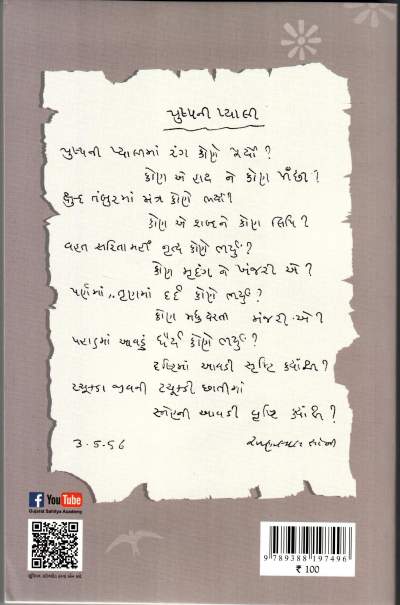 પુષ્પની પ્યાલી
પુષ્પની પ્યાલીમાં રંગ કોણે રેર્યો?
કોણ એ હાથ ને કોણ પીંછી?
ક્ષુબ્ધ તંબુરમાં મંત્ર કોણે ભર્યો?
કોણ એ શબ્દને કોણ લિપિ?
વસ્ત સરિતા મહીં નૃત્ય કોણે ભર્યું?
કોણ મૃદંગ ને ખંજરી એ?
પર્ણમાં.. તૃણમાં દર્દ કોણે ભર્યું?
કોણ મધુ મંજરી એ?
પહાડમાં આવડું ધૈર્ય કોણે ભર્યું?
દૃષ્ટિમાં આવડી સૃષ્ટિ ક્યાંથી?
ટચૂકડા જીવની ટચૂકડી છાતીમાં
સ્નેહની આવડી વૃષ્ટિ ક્યાંથી?
૩.૫.૫૬
f You Tube
Gujarat Sahitya Academy
9 789388 197496
₹ 100